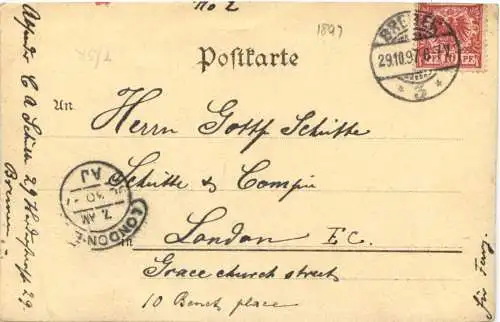 No 2
1897
Postkarte
BREMEN
29.10.97. 6-7N
* 3 *
10 PF.
An
Herrn Gottf Schütte
Schütte & Compie
in London EC.
Grace church street
10 Bench place
LONDON.E.
7. AM
30
AJ
Absender C A Schütte 29
29.
Bremen.